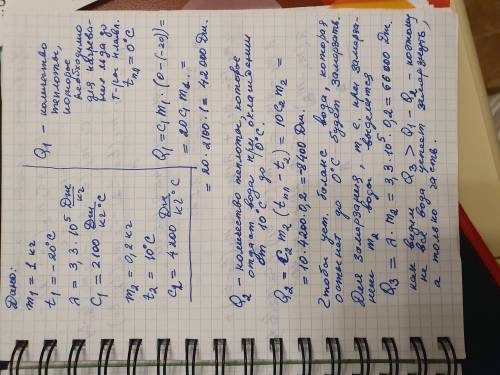 Дано:
m₁ = 1 кг
t₁ = -20°C
λ = 3,3 · 10⁵ Дж/кг
C₁ = 2100 Дж/кг°C
m₂ = 0,2 кг
t₂ = 10°C
c₂ = 4200 Дж/кг°C
Q₁ - количество
теплоты,
которое
необходимо
для нагрева-
ния льда до
т-ры плавл.
tпл = 0°C
Q₁ = C₁ m₁ · (0 - (-20)) =
= 20 C₁ m₁ =
= 20 · 2100 · 1 = 42000 Дж.
Q₂ - количество теплоты, которое
отдаст вода при охлаждении
от 10°C до 0°C.
Q₂ = C₂ m₂ (tпл - t₂) = 10 C₂ m₂ =
= 10 · 4200 · 0,2 = -8400 Дж.
Чтобы уст. баланс вода, которая
остынет до 0°C будет замерзать.
Для замерзания, т.е. при замерза-
нии m₂ воды выделится
Q₃ = λ · m₂ = 3,3 · 10⁵ · 0,2 = 66000 Дж.
как видим Q₃ > Q₁ - Q₂ - поэтому
не вся вода успеет замерзнуть,
а только часть.